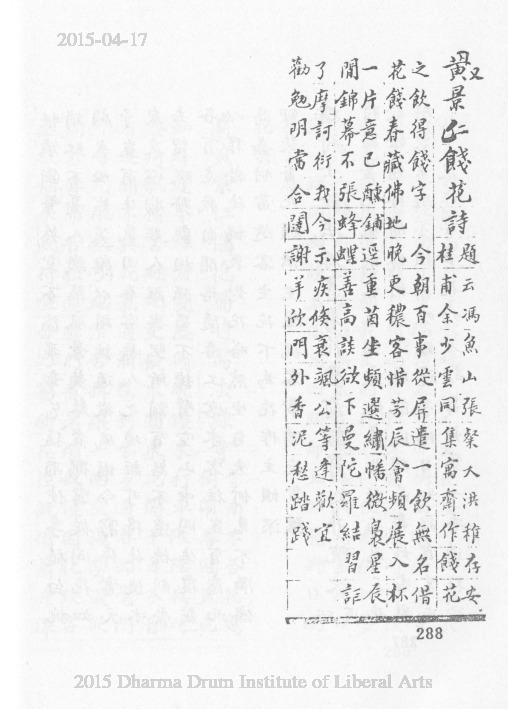 2015-04-17
又
黃景仁餞花詩
題云馮魚山張粲大洪稚存安
桂甫余少雲同集寓齋作餞花
之飲得餞字 今朝百事從屏遣一飲無名借
花餞春藏佛地晚更穠客惜芳辰會頻展入杯
一片意已醺鋪逕重茵坐頻選繡幡微裊星辰
閒錦幕不張蜂蝶善高談欲下曼陀羅結習詎
了摩訶衍我今示疾倏衰颯公等逢歡宜
勸勉明常合謝羊欣門外香泥愁踏踐
288
2015 Dharma Drum Institute of Liberal Arts